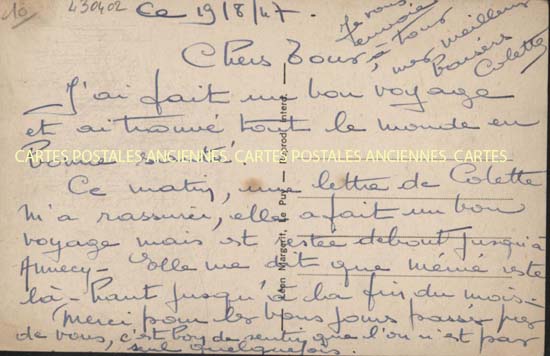 10
430402
Ce 19/8/47.
Chers Tous,
J'ai fait un bon voyage
et ai trouvé tout le monde en
bonne santé.
CARTES POSTALES ANCIENNES CARTES POSTALES ANCIENNES CARTES
Ce matin, une lettre de Colette
m'a rassurée, elle a fait un bon
voyage mais est restée debout jusqu'à
Annecy - elle me dit que mémé reste
là-haut jusqu'à la fin du mois -
Merci pour les bons jours passés près
de vous, c'est bon de sentir que l'on n'est pas
seul quelquefois.
Je vous
envoie
à tous
mes meilleurs
baisers
Colette
Léon Margerit, Le Puy — Reprod. Interd.